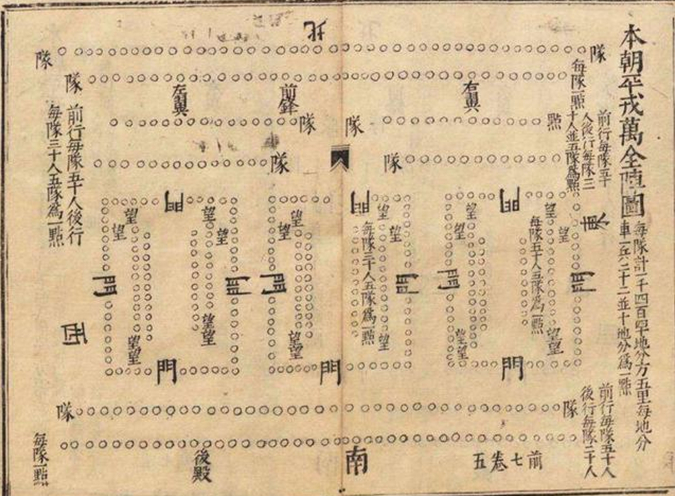 本朝平戎萬全陣圖
每隊計一千四百四十地分方五里每地分
車一兵二十二並十地分爲一點
前行每隊五十人
後行每隊三十人
東
前行每隊五十
人後行每隊三
十人並五隊爲點
每隊一點
隊
點
北
右翼
前鋒
左翼
隊
隊
隊
隊
隊
隊
門
門
門
門
門
門
門
門
門
望
望
望
望
望
望
望
望
望
望
望
望
望望
望望
望望
望望
每隊五十人五隊爲一點
每隊三十人五隊爲一點
前行每隊五十人後行
每隊三十人五隊爲一點
西
隊
隊
每隊一點
後殿
南
前七卷五